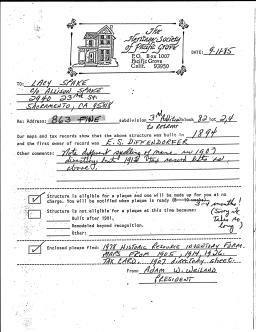 The
Heritage Society
of Pacific Grove
P.O. Box 1007
Pacific Grove
Calif. 93950
DATE: 9-12-85
TO: LACY SPAKE
C/O ALLISON SPAKE
2940 23rd St.
SACRAMENTO, CA 95818
Re: Address: 863 PINE subdivision 3rd Addition block 82 lot 2,4
Our maps and tax records show that the above structure was built in 1894
and the first owner of record was E.S. DIFFENDORFER
Other comments: Note different spelling of name in 1907
directory but 1912 tax record lists as
above.
Structure is eligible for a plaque and one will be made for you at no
charge. You will be notified when plaque is ready (8-10 weeks) 3-4 months!
(Sorry it takes so long)
Structure is not eligible for a plaque at this time because:
Built after 1901.
Remodeled beyond recognition.
Other:
Enclosed please find: 1978 HISTORIC RESOURCE INVENTORY FORM.
MAPS FROM 1905, 1914, 1926.
TAX CARD. 1907 directory sheet.
From: ADAM W. WEILAND
PRESIDENT